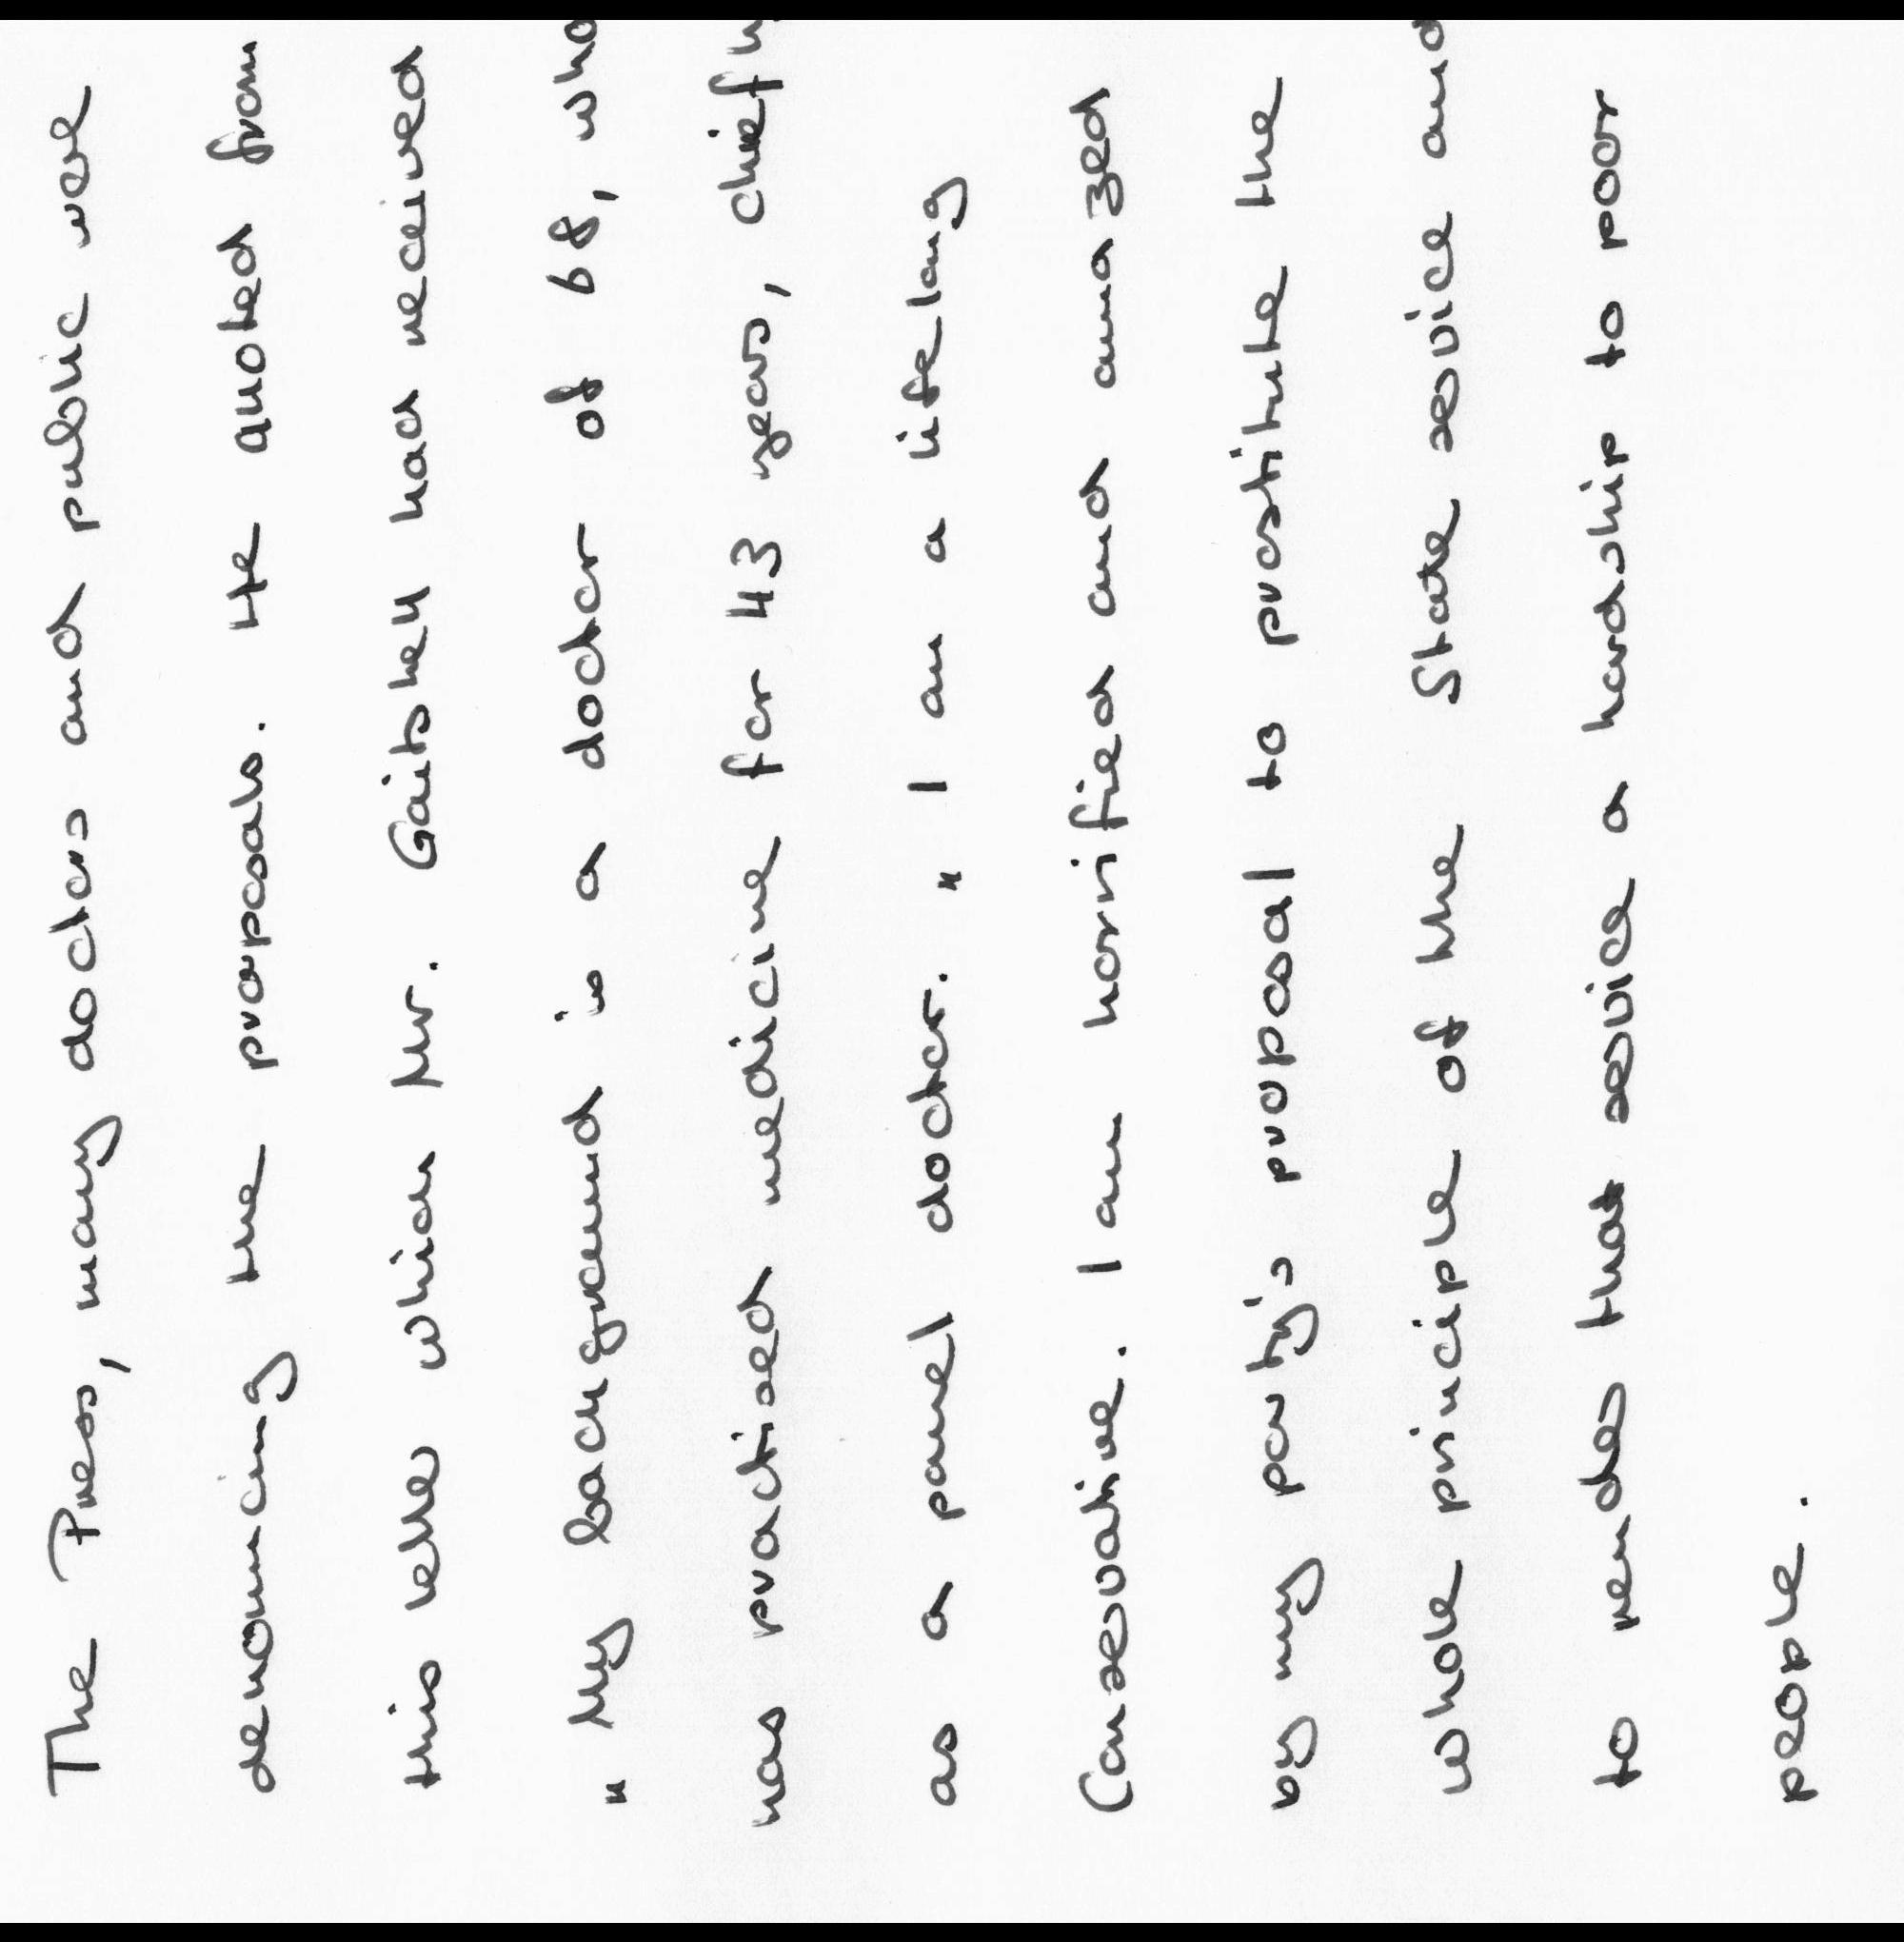 The Press, many doctors and public were
denouncing the proposals. He quoted from
this letter which Mr. Gaitskell had received
" My background is a doctor of 68, who
has practised medicine for 43 years, chiefly
as a panel doctor. " I am a lifelong
Conservative. I am horrified and amazed
by my party's proposal to prostitute the
whole principle of the State service and
to render that service a hardship to poor
people.